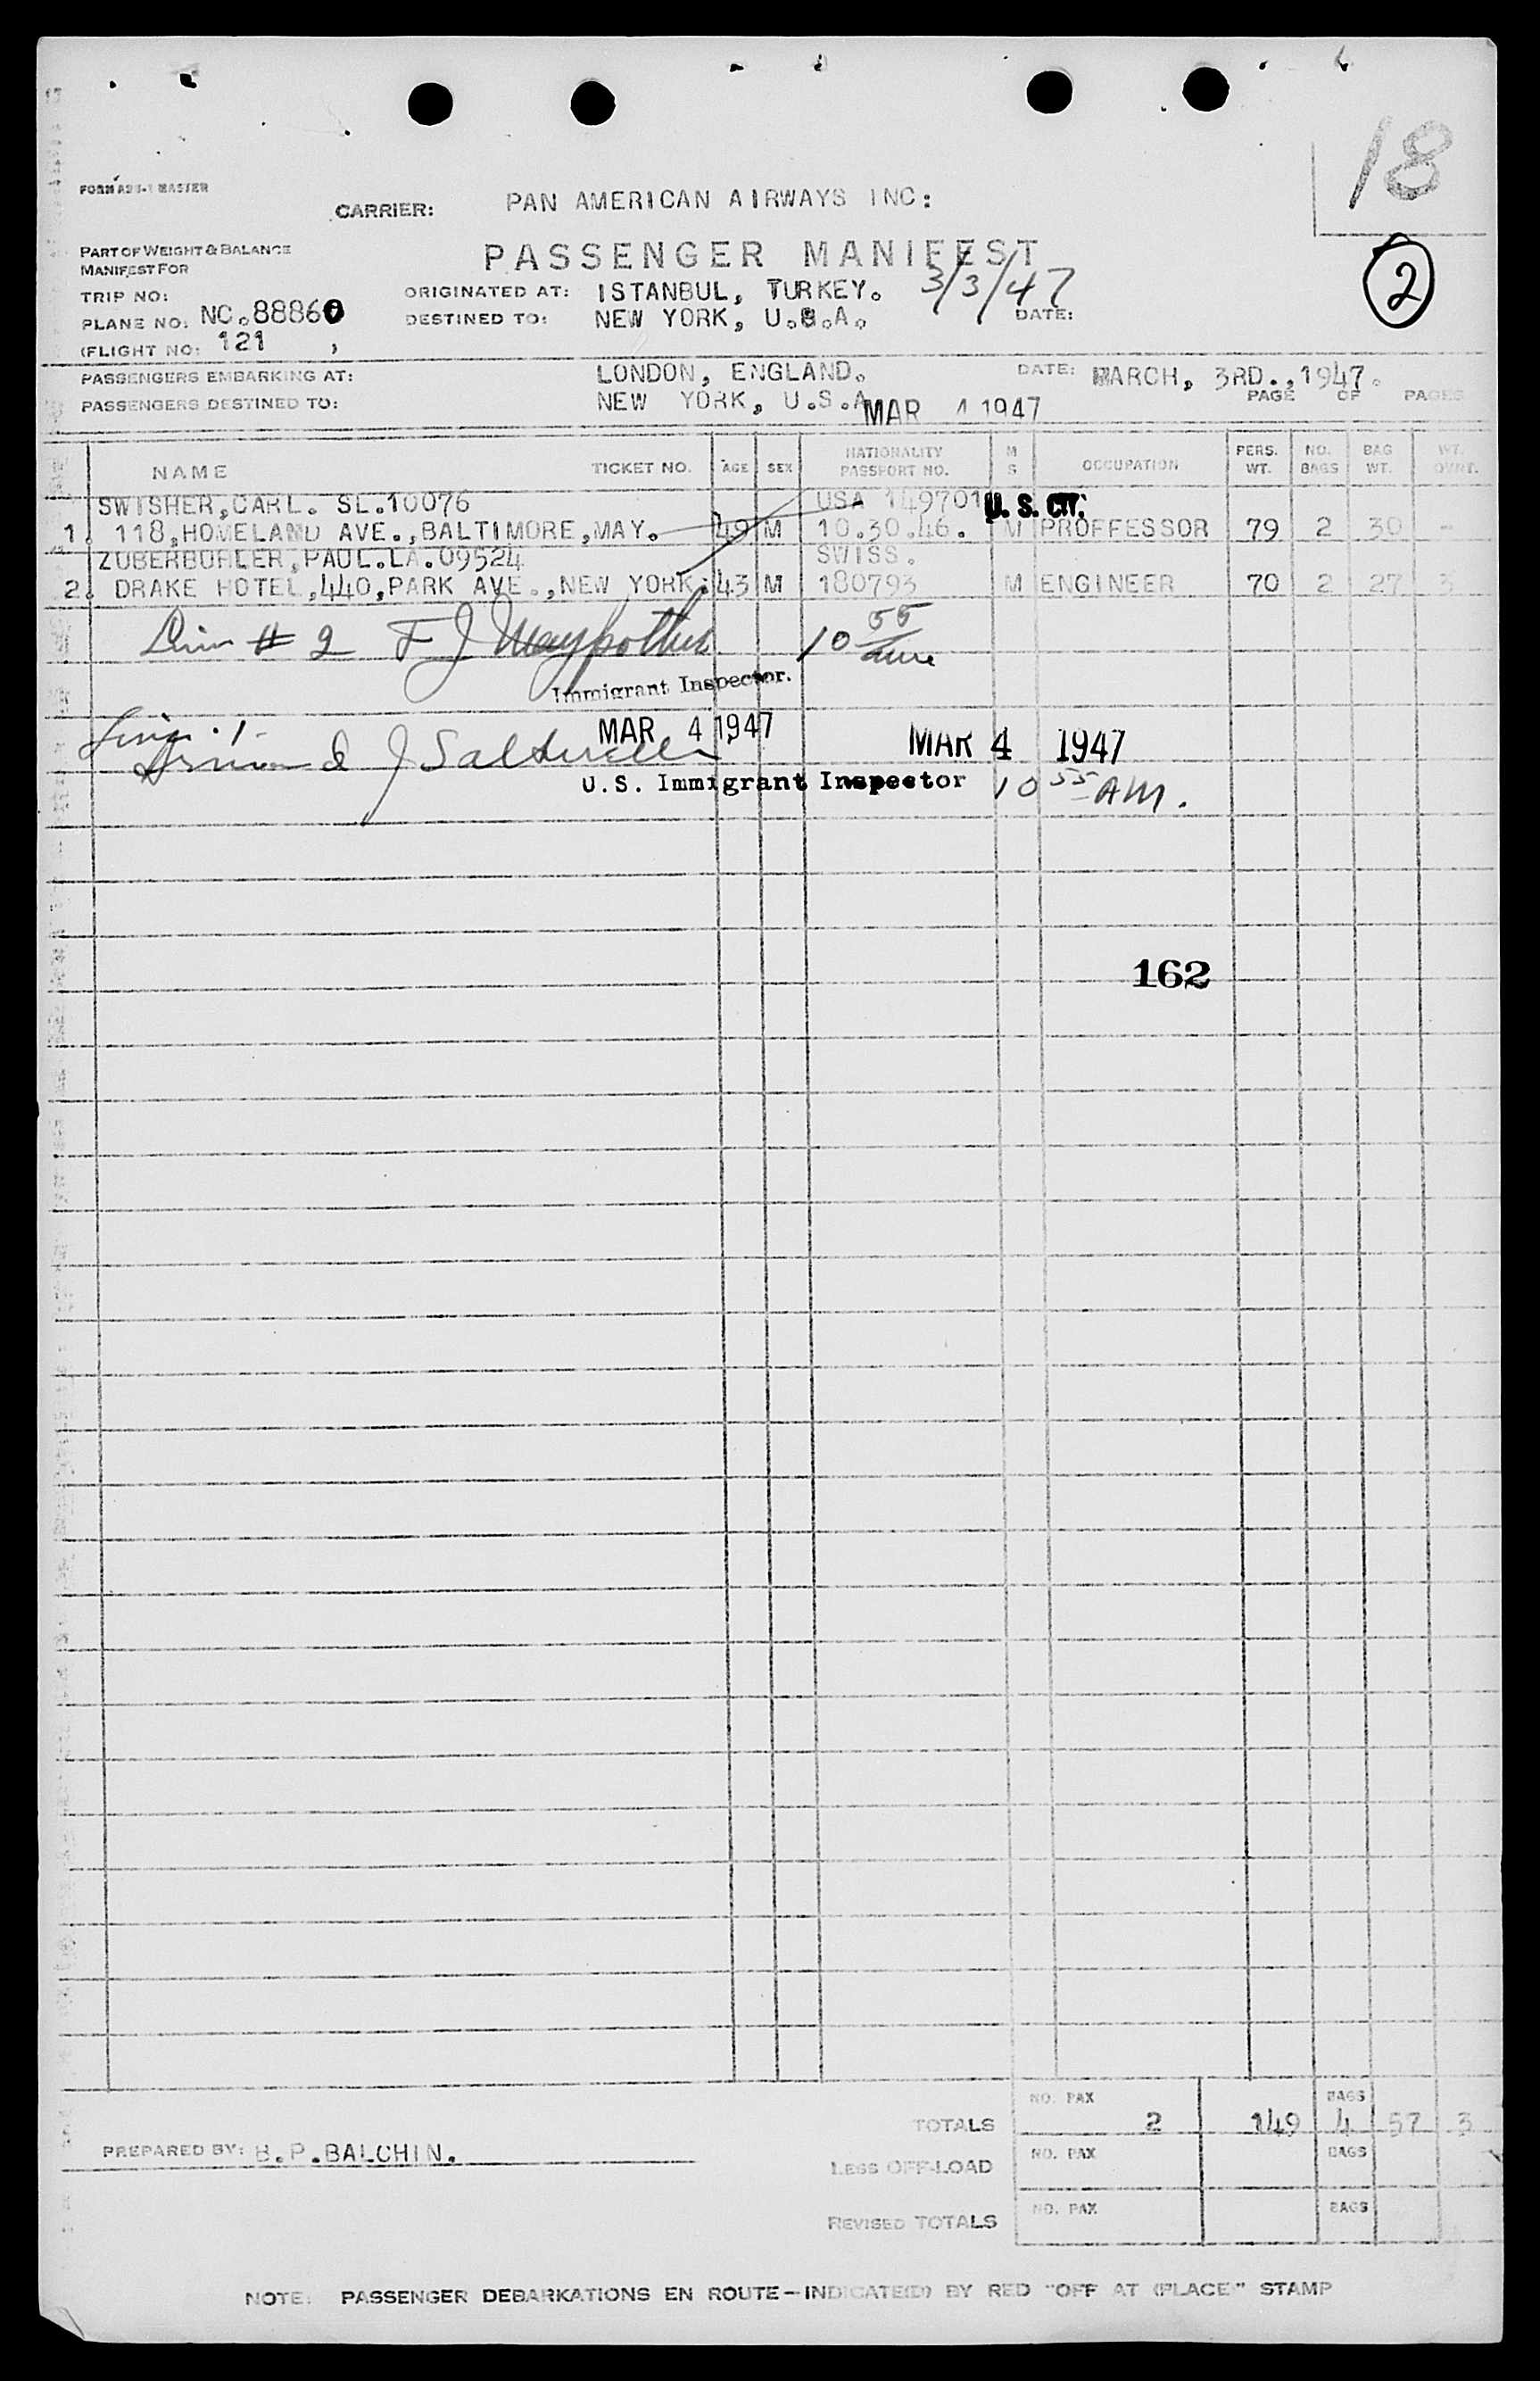 18
FORM MASTER
CARRIER: PAN AMERICAN AIRWAYS INC:
PART OF WEIGHT & BALANCE
MANIFEST FOR
PASSENGER MANIFEST
2
TRIP NO:
ORIGINATED AT: ISTANBUL, TURKEY. 3/3/47
PLANE NO: NC.88860
DESTINED TO: NEW YORK, U.S.A. DATE:
(FLIGHT NO: 121 ,
PASSENGERS EMBARKING AT: LONDON, ENGLAND. DATE: MARCH, 3RD.,1947.
PASSENGERS DESTINED TO: NEW YORK, U.S.A. MAR 4 1947 PAGE OF PAGES
NAME TICKET NO. AGE SEX NATIONALITY PASSPORT NO. M S OCCUPATION PERS. WT. NO. BAGS BAG WT. WT. OVRT.
SWISHER,CARL. SL.10076 USA 149701 U. S. CIT.
1. 118,HOMELAND AVE.,BALTIMORE,MAY. 49 M 10.30.46. M PROFFESSOR 79 2 30 -
ZUBERBUHLER,PAUL.LA.09524 SWISS.
2. DRAKE HOTEL,440,PARK AVE.,NEW YORK. 43 M 180793 M ENGINEER 70 2 27 3
# 2 F J 10 55
Immigrant Inspector.
MAR 4 1947 MAR 4 1947
J
U.S. Immigrant Inspector 10 55 AM.
162
TOTALS NO. PAX 2 149 BAGS 4 57 3
PREPARED BY: B.P.BALCHIN.
LESS OFF-LOAD NO. PAX BAGS
REVISED TOTALS NO. PAX BAGS
NOTE: PASSENGER DEBARKATIONS EN ROUTE—INDICATE(D) BY RED "OFF AT (PLACE)" STAMP